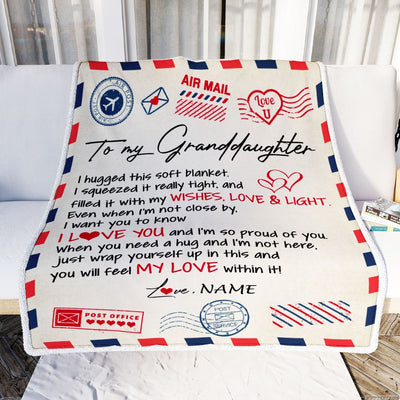 AIR MAIL
Love U
To my Granddaughter
I hugged this soft blanket.
I squeezed it really tight, and
filled it with my WISHES, LOVE & LIGHT.
Even when I'm not close by.
I want you to know
I L❤VE YOU and I'm so proud of you.
When you need a hug and I'm not here,
just wrap yourself up in this and
you will feel MY LOVE within it!
Love, NAME
POST OFFICE
POST
SERVICE